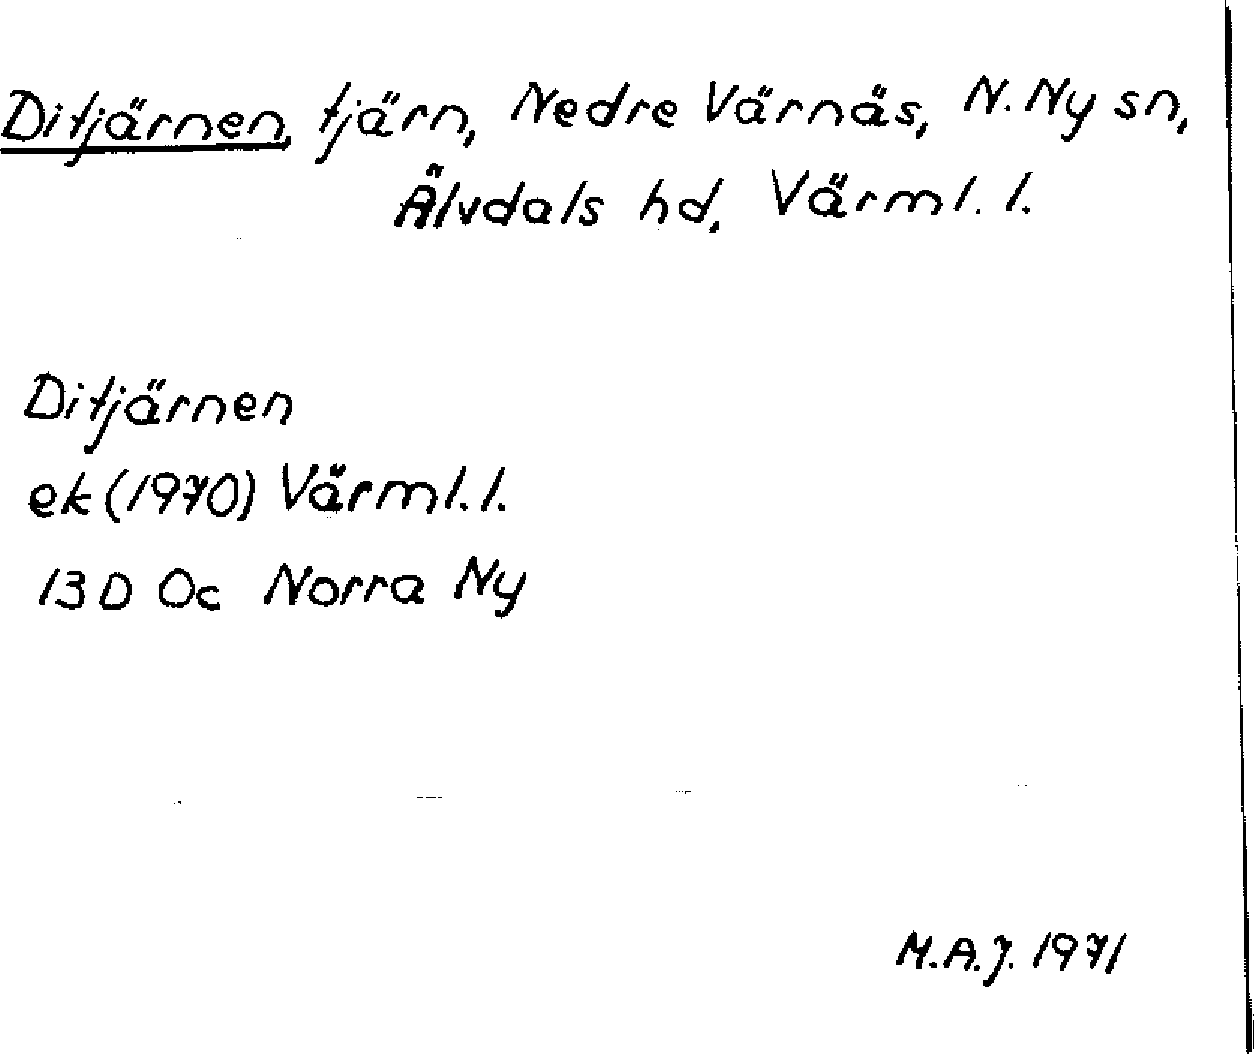 Ditjärnen, tjärn, Nedre Värnäs, N. Ny sn,
Älvdals hd, Värml. l.
Ditjärnen
ek (1970) Värml. l.
13 D Oc Norra Ny
M.A.J. 1971